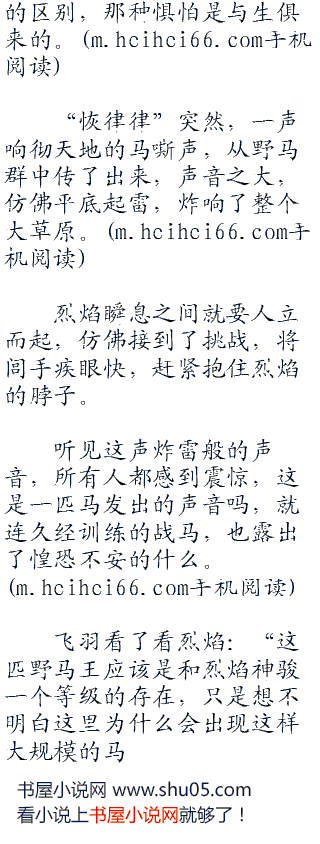 的区别，那种惧怕是与生俱
来的。(m.hcihci66.com手机
阅读)
“恢律律”突然，一声
响彻天地的马嘶声，从野马
群中传了出来，声音之大，
仿佛平底起雷，炸响了整个
大草原。(m.hcihci66.com手
机阅读)
烈焰瞬息之间就要人立
而起，仿佛接到了挑战，将
闾手疾眼快，赶紧抱住烈焰
的脖子。
听见这声炸雷般的声
音，所有人都感到震惊，这
是一匹马发出的声音吗，就
连久经训练的战马，也露出
了惶恐不安的什么。
(m.hcihci66.com手机阅读)
飞羽看了看烈焰：“这
匹野马王应该是和烈焰神骏
一个等级的存在，只是想不
明白这里为什么会出现这样
大规模的马
书屋小说网 www.shu05.com
看小说上书屋小说网就够了！